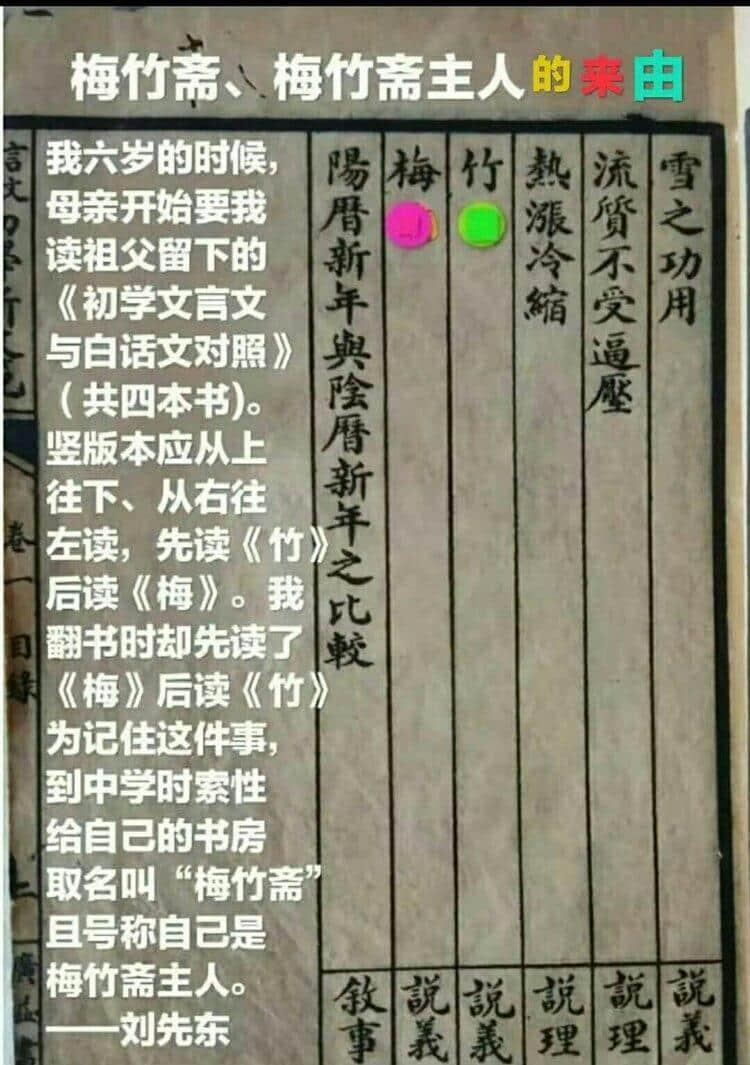 梅竹斋、梅竹斋主人的来由
我六岁的时候，
母亲开始要我
读祖父留下的
《初学文言文
与白话文对照》
（共四本书)。
竖版本应从上
往下、从右往
左读，先读《竹》
后读《梅》。我
翻书时却先读了
《梅》后读《竹》
为记住这件事，
到中学时索性
给自己的书房
取名叫“梅竹斋”
且号称自己是
梅竹斋主人。
——刘先东
雪之功用 說義
流質不受逼壓 說理
熱漲冷縮 說理
竹 說義
梅 說義
陽曆新年與陰曆新年之比較 敘事
言文
卷一 目錄